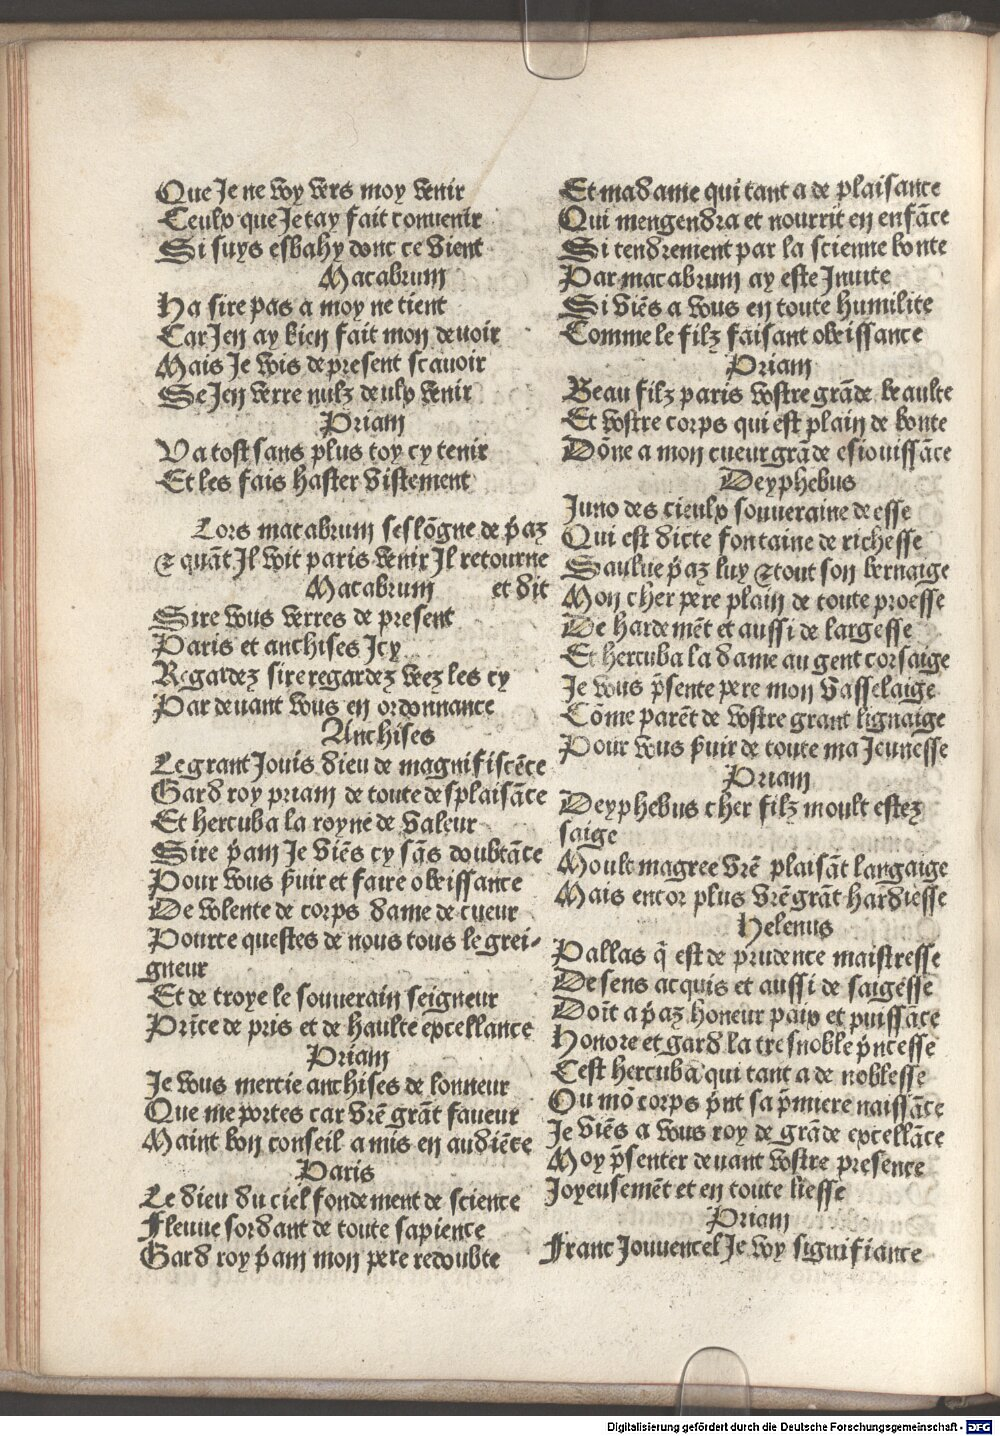 Que Je ne voy vers moy venir
Ceulx que Je tay fait conuenir
Si suys esbahy dont ce vient
Macabrum
Ha sire pas a moy ne tient
Car Jen ay bien fait mon deuoir
Mais Je vois de present scauoir
Se Jen verre nulz deulx venir
Priam
Va tost sans plus toy cy tenir
Et les fais haster vistement
Lors macabrum seslõgne de p̃az
⁊ quãt Jl voit paris venir Jl retourne
Macabrum et dit
Sire vous verres de present
Paris et anchises Jcy
Regardez sire regardez veez les cy
Par deuant vous en ordonnance
Anchises
Le grant Jouis dieu de magnifiscẽce
Gard roy priam de toute desplaisãce
Et hercuba la royne de valeur
Sire p̃am Je viẽs cy sãs doubtãce
Pour vous ẜuir et faire obeissance
De volente de corps dame de cueur
Pource questes de nous tous le grei-
gneur
Et de troye le souuerain seigneur
Prĩce de pris et de haulte excellance
Priam
Je vous mercie anchises de lonneur
Que me portes car vrẽ grãt faueur
Maint bon conseil a mis en audiẽce
Paris
Le dieu du ciel fondement de science
Fleuue sordant de toute sapience
Gard roy p̃am mon pere redoubte
Et madame qui tant a de plaisance
Qui mengendra et nourrit en enfãce
Si tendrement par la scienne bonte
Par macabrum ay este Jnuite
Si viẽs a vous en toute humilite
Comme le filz faisant obeissance
Priam
Beau filz paris vostre grãde beaulte
Et vostre corps qui est plain de bonte
Dõne a mon cueur grãde esiouissãce
Deyphebus
Juno des cieulx souueraine deesse
Qui est dicte fontaine de richesse
Saulue p̃az luy ⁊ tout son bernaige
Mon cher pere plain de toute proesse
De hardemẽt et aussi de largesse
Et hercuba la dame au gent corsaige
Je vous p̃sente pere mon vasselaige
Cõme parẽt de vostre grant lignaige
Pour vous ẜuir de toute ma Jeunesse
Priam
Deyphebus cher filz moult estez
saige
Moult magree vrẽ plaisãt langaige
Mais encor plus vrẽ grãt hardiesse
Helenus
Pallas q̃ est de prudence maistresse
De sens acquis et aussi de saigesse
Doĩt a p̃az honeur paix et puissãce
Honore et gard la tresnoble p̃ncesse
Cest hercuba qui tant a de noblesse
Ou mõ corps p̃nt sa p̃miere naissãce
Je viẽs a vous roy de grãde excellãce
Moy p̃senter deuant vostre presence
Joyeusemẽt et en toute liesse
Priam
Franc Jouuencel Je voy signifiance
Digitalisierung gefördert durch die Deutsche Forschungsgemeinschaft - DFG